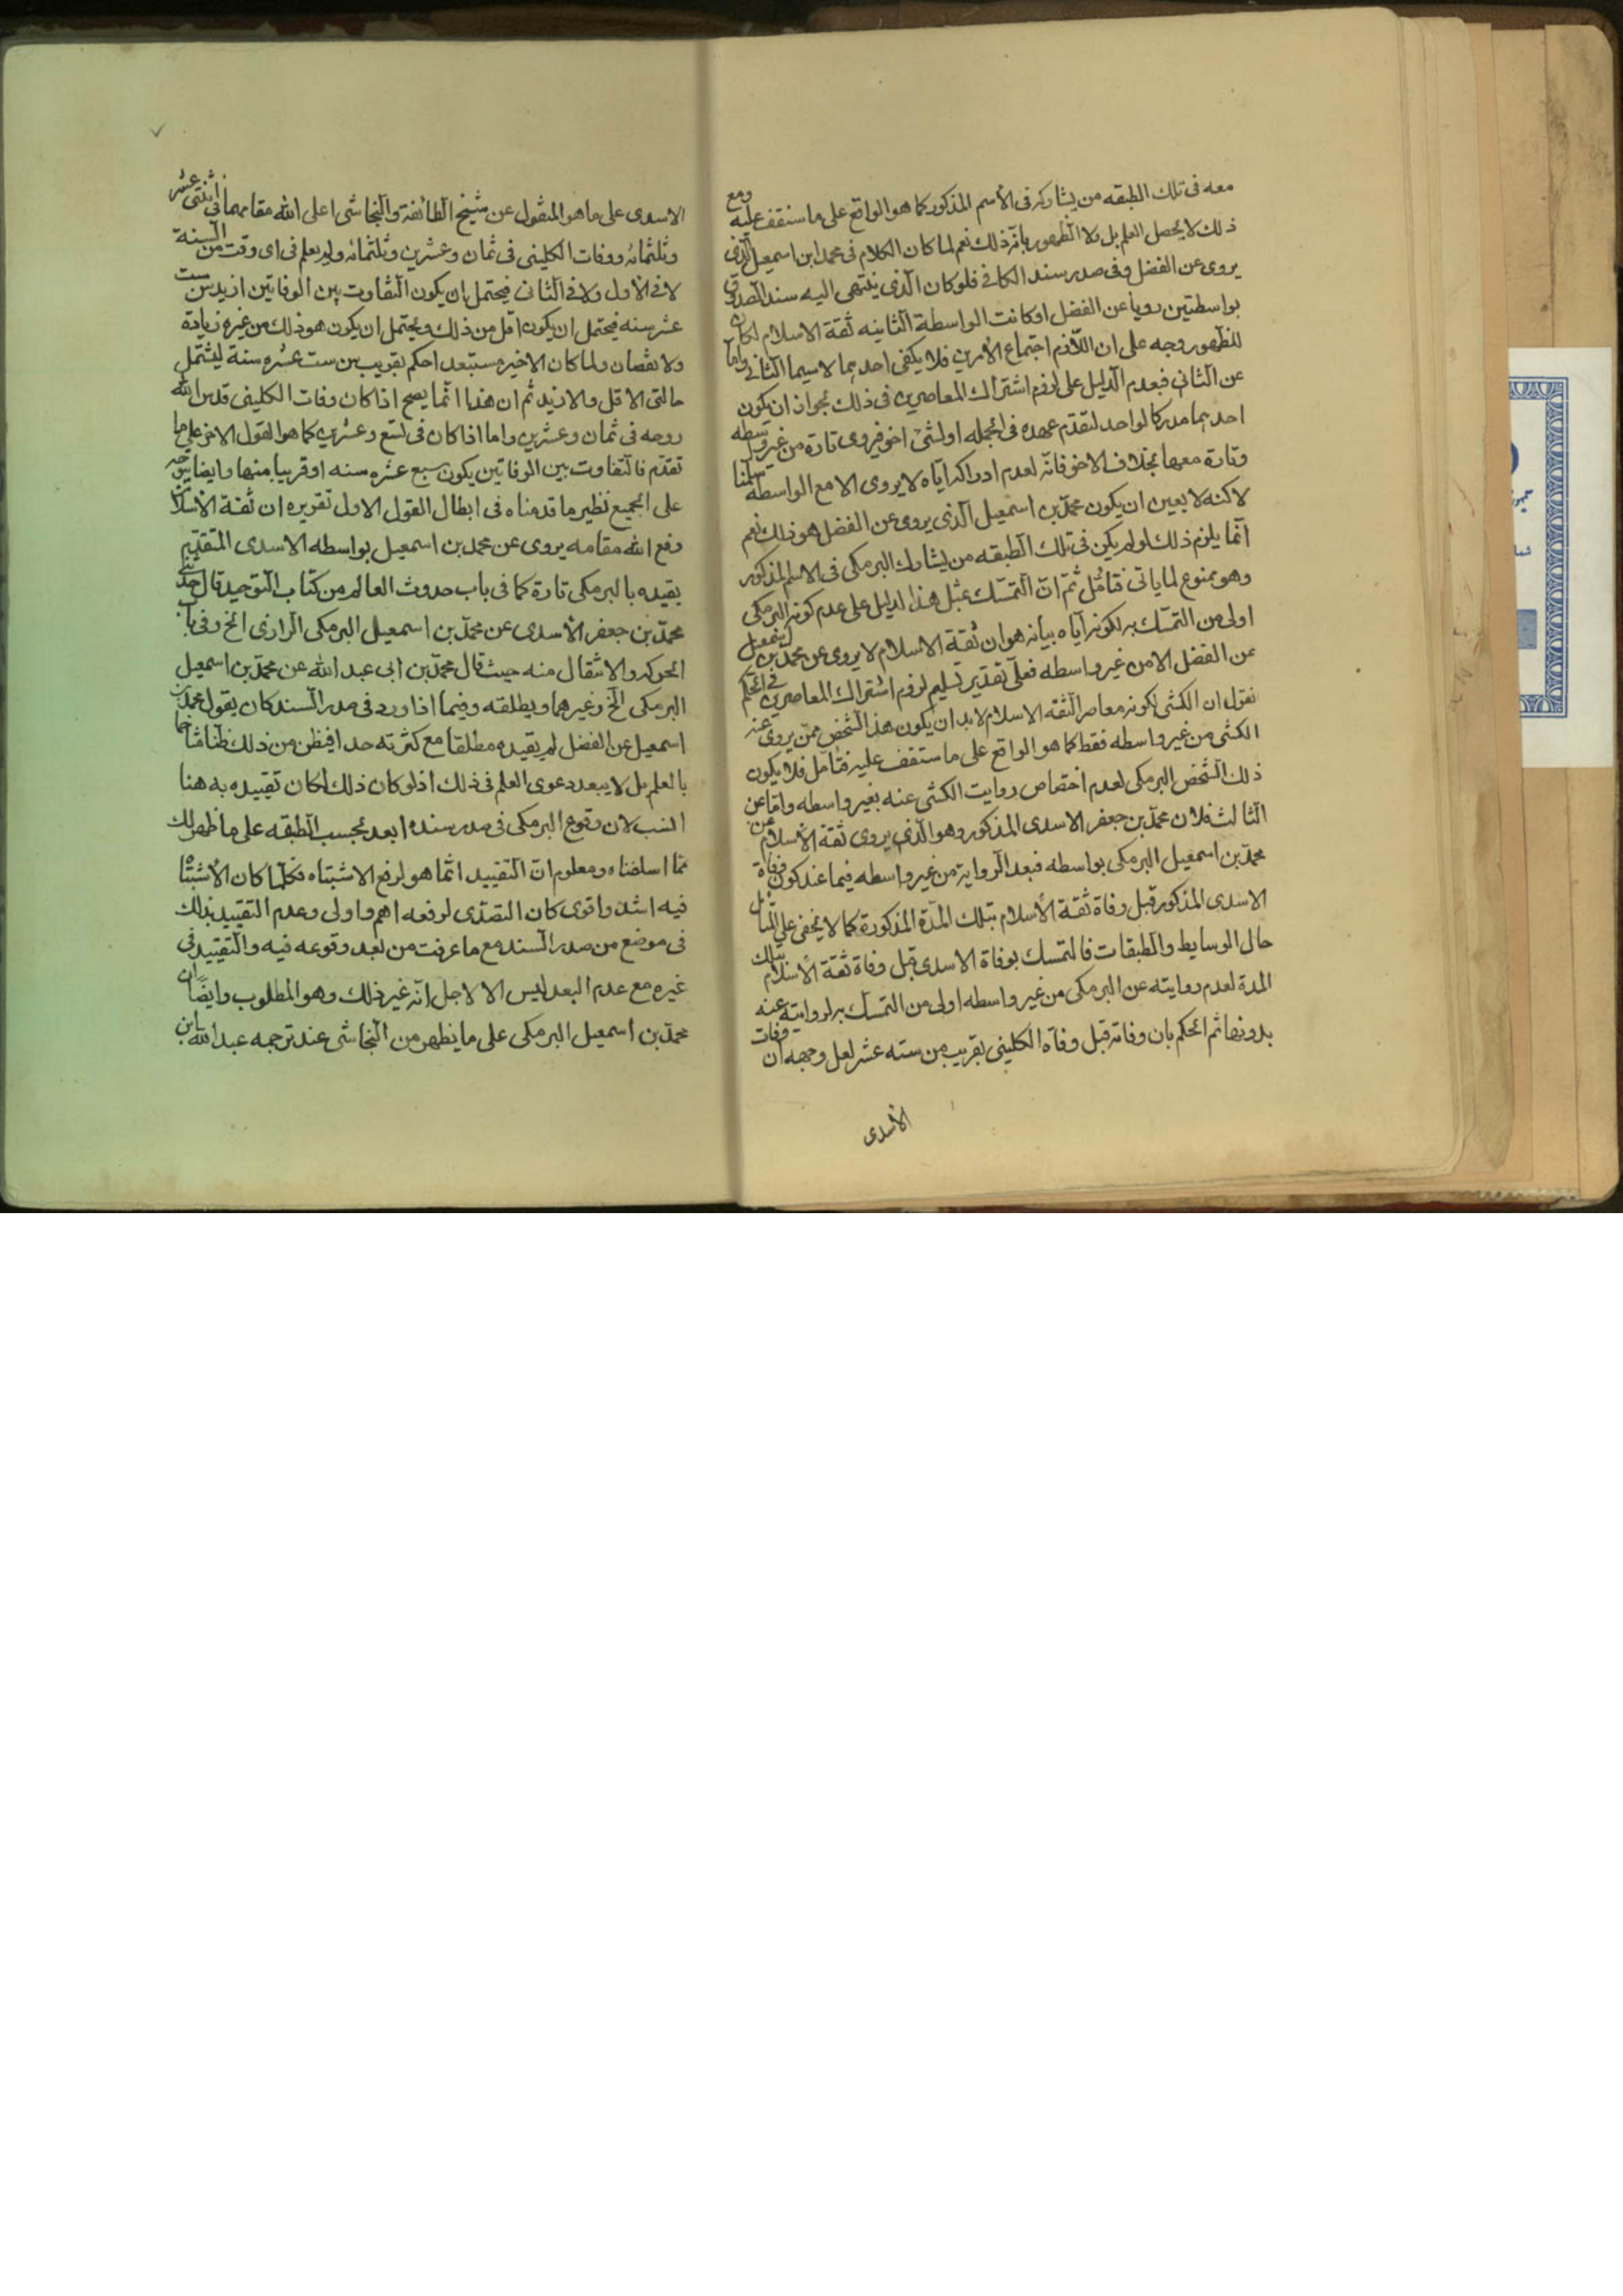 معه فى تلك الطبقه من يشاركه فى الأسم المذكور كما هو الواقع على ما ستقف عليه ومع
ذلك لا يحصل العلم بل ولا الظهور بانّه ذلك نعم لما كان الكلام فى محمد ابن اسمعيل الّذى
يروى عن الفضل وفى صدر سند الكافى فلو كان الّذى ينتهى اليه سند الصدوق
بواسطتين رويا عن الفضل او كانت الواسطة الثانيه ثقة الاسلام لكان
للظهور وجه على ان اللّازم اجتماع الأمرين فلا يكفى احدهما لاسيما الثانى واما
عن الثانى فبعدم الدليل على لزوم اشتراك المعاصرين فى ذلك لجواز ان يكون
احدهما مدركا لواحد لتقدم عهده فى الجمله او لشئ اخر فيروى تارة من غير واسطه
وتارة معها بخلاف الاخر فانه لعدم ادراكه اياه لا يروى الا مع الواسطه سلمنا
لاكنه لا يعين ان يكون محمّد بن اسمعيل الّذى يروى عن الفضل هو ذلك نعم
انّما يلزم ذلك لو لم يكن فى تلك الطبقه من يشارك البرمكى فى الاسم المذكور
وهو ممنوع لما ياتى فتامّل ثمّ انّ التمسّك بمثل هذا الدليل على عدم كونه البرمكى
اولى من التمسّك به لكونه اياه بيانه هو ان ثقة الاسلام لا يروى عن محمّد بن اسمعيل
عن الفضل الا من غير واسطه فعلى تقدير تسليم لزوم اشتراك المعاصرين فى الحكم
نقول ان الكشى لكونه معاصر الثقة الاسلام لابد ان يكون هذا الشخص ممّن يروى عنه
الكشى من غير واسطه فقط كما هو الواقع على ما ستقف عليه فتامّل فلا يكون
ذلك الشخص البرمكى لعدم اختصاص روايت الكشى عنه بغير واسطه وامّا عن
الثالث فلان محمّد بن جعفر الاسدى المذكور وهو الّذى يروى ثقة الأسلام عن
محمّد بن اسمعيل البرمكى بواسطه فبعد الرواية من غير واسطه فيما عند كون وفاة
الاسدى المذكور قبل وفاة ثقة الأسلام بتلك المدّة المذكورة كما لا يخفى على المتأمل
حال الوسايط والطبقات فالتمسك بوفاة الاسدى قبل وفاة ثقة الأسلام بتلك
المدة لعدم روايته عن البرمكى من غير واسطه اولى من التمسك به لروايته عنه
بدونها ثم الحكم بان وفاته قبل وفاة الكلينى بقريب من سته عشر لعل وجهه ان وفات
الأسدى
الاسدى على ما هو المنقول عن شيخ الطائفة والنجاشى اعلى الله مقامهما فى اثنتى عشر
وثلثمائه ووفات الكلينى فى ثمان وعشرين وثلثمائه ولم يعلم فى اى وقت من السنة
لا فى الأول ولا فى الثانى فيحتمل ان يكون التفاوت بين الوفاتين ازيد من ست
عشر سنه فيحتمل ان يكون اقل من ذلك ويحتمل ان يكون هو ذلك من غير زيادة
ولا نقصان ولما كان الاخير مستبعد احكم بقريب من ست عشره سنة ليشتمل
حالتى الاقل والازيد ثم ان هذا انّما يصح اذا كان وفات الكلينى قدس الله
روحه فى ثمان وعشرين واما اذا كان فى تسع وعشرين كما هو القول الاخر على ما
تقدّم فالتفاوت بين الوفاتين يكون سبع عشره سنه او قريبا منها وايضا يتوجه
على الجميع نظير ما قدمناه فى ابطال القول الاول تقريره ان ثقة الأسلام
رفع الله مقامه يروى عن محمد بن اسمعيل بواسطه الاسدى المتقدّم
يقيده بالبرمكى تارة كما فى باب حدوث العالم من كتاب التوحيد قال حدثنى
محمّد بن جعفر الأسدى عن محمّد بن اسمعيل البرمكى الرازى الخ وفى باب
الحركه والانتقال منه حيث قال محمّد بن ابى عبد الله عن محمّد بن اسمعيل
البرمكى الخ وغيرهما ويطلقه وفيما اذا ورد فى صدر السند كان يقول محمّد بن
اسمعيل عن الفضل لم يقيده مطلقا مع كثرته جدا فيظن من ذلك ظنا متاخما
بالعلم بل لا يبعد دعوى العلم فى ذلك اذ لو كان ذلك لكان تقييده به هنا
انسب لان وقوع البرمكى فى صدر سنده ابعد بحسب الطبقه على ما ظهر لك
ممّا اسلفناه ومعلوم انّ التقييد انّما هو لرفع الاشتباه فكلّما كان الأشتباه
فيه اشد واقوى كان التصدّى لرفعه اهم واولى وعدم التقييد بذلك
فى موضع من صدر السند مع ما عرفت من بعد وقوعه فيه والتقييد فى
غيره مع عدم البعد ليس الا لاجل انّه غير ذلك وهو المطلوب وايضًا ان
محمّد بن اسمعيل البرمكى على ما يظهر من النجاشى عند ترجمه عبد الله بن